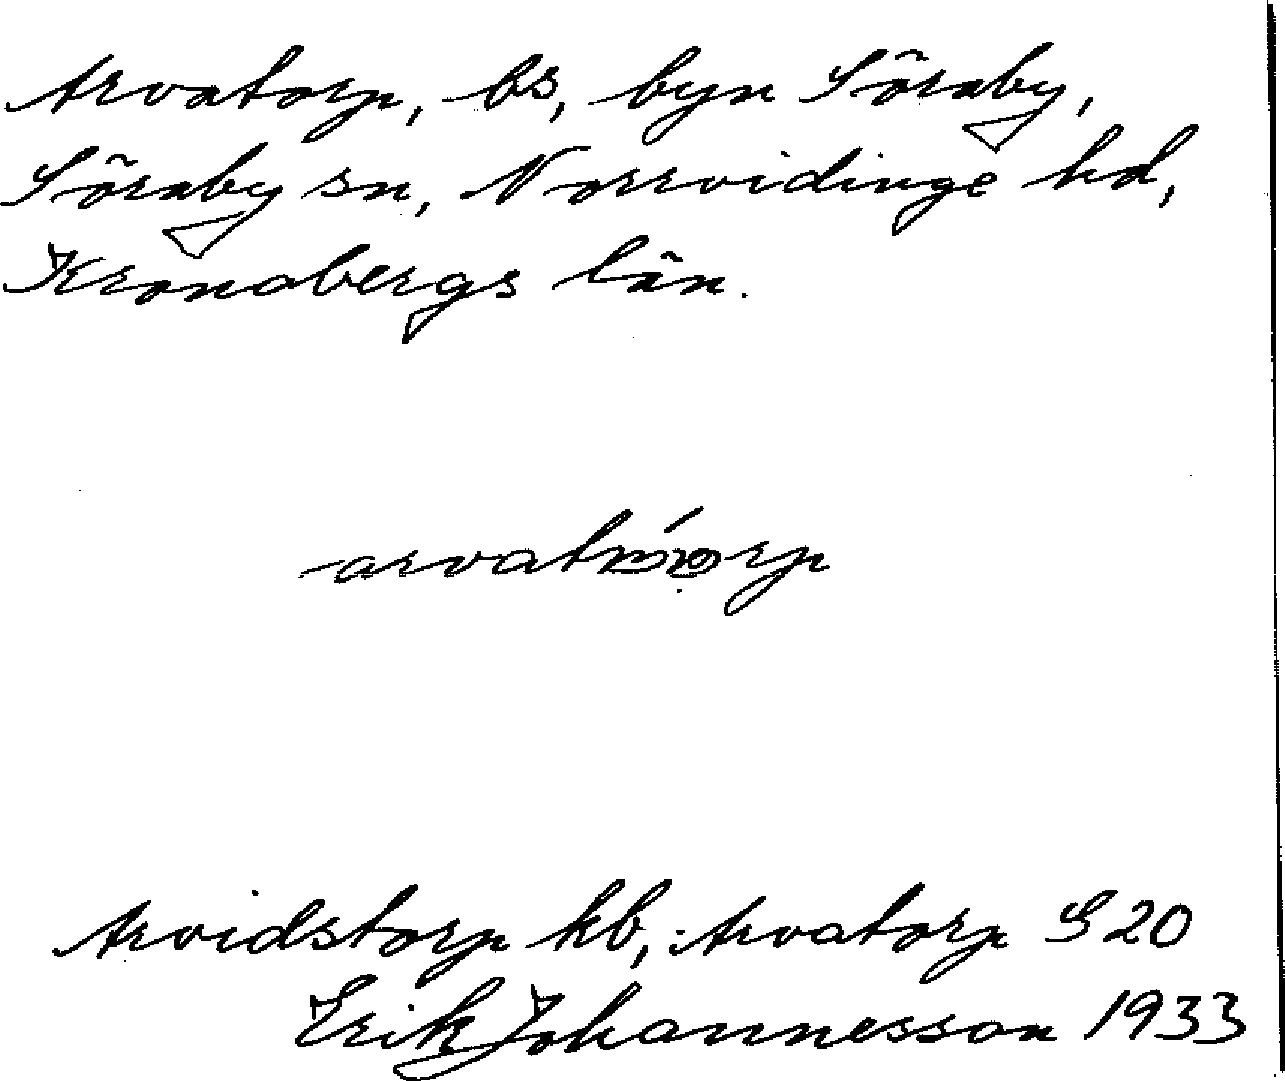 Arvatorp, bs, byn Söraby,
Söraby sn, Norrvidinge hd,
Kronobergs län.
Arvidstorp kb, Arvatorp S 20
Erik Johannesson 1933